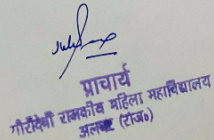 प्राचार्य
गौरीदेवी राजकीय महिला महाविद्यालय
अलवर (राज०)